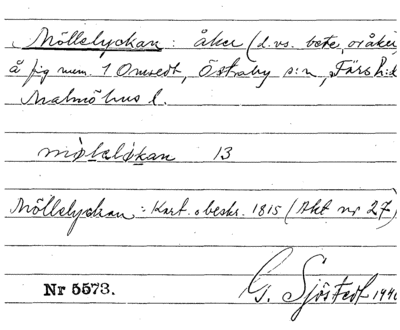 Möllelyckan: åker (d.vs. bete, oråker)
å fig num. 1 Onsvedt, Östraby s:n, Färs h:d
Malmöhus l.
møl̥eløkan 13
Möllelyckan: Kart. o beskr. 1815 (Akt nr 27)
G. Sjöstedt
Nr 5573.